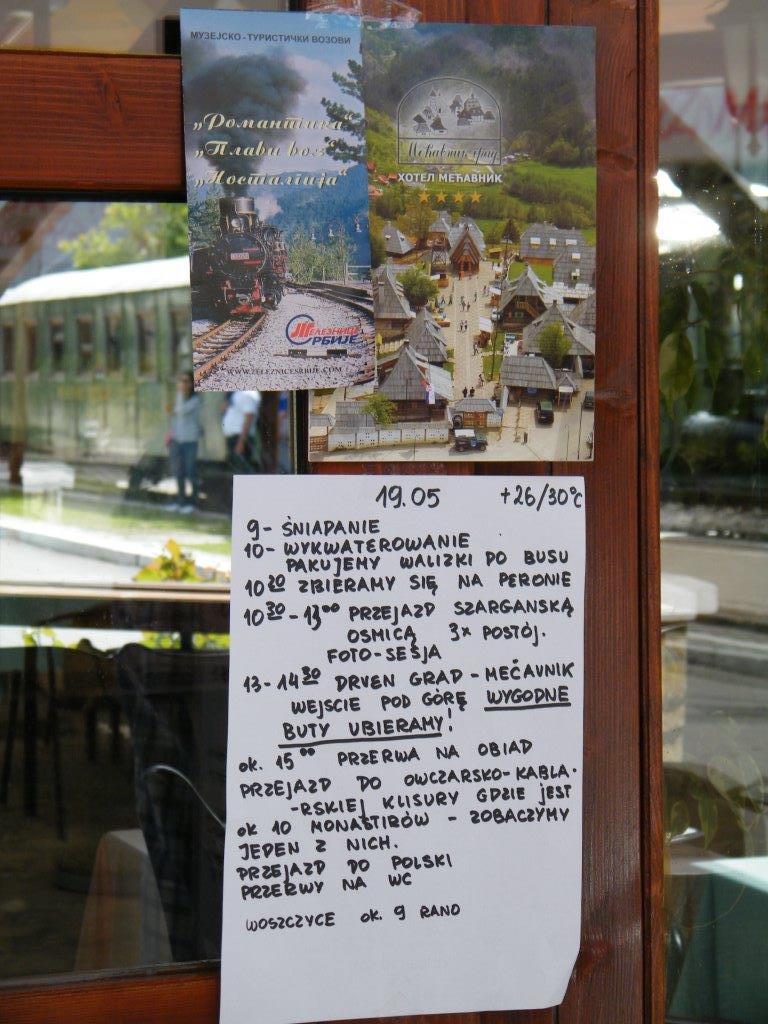 МУЗЕЈСКО-ТУРИСТИЧКИ ВОЗОВИ
„Романтика“
„Плави воз“
„Носталгија“
ЖЕЛЕЗНИЦЕ
СРБИЈЕ
WWW.ZELEZNICESRBIJE.COM
Мећавник град
ХОТЕЛ МЕЋАВНИК
19.05 +26/30°C
9- ŚNIAPANIE
10- WYKWATEROWANIE
PAKUJEMY WALIZKI DO BUSU
10 20 ZBIERAMY SIĘ NA PERONIE
10 30 - 13 00 PRZEJAZD SZARGANSKĄ
OSMICĄ 3x POSTÓJ.
FOTO-SESJA
13- 14 30 DRVEN GRAD - MEČAVNIK
WEJSCIE POD GÓRĘ WYGODNE
BUTY UBIERAMY!
ok. 15 00 PRZERWA NA OBIAD
PRZEJAZD DO OWCZARSKO-KABLA-
-RSKIEJ KLISURY GDZIE JEST
ok 10 MONASTIRÓW - ZOBACZYMY
JEDEN Z NICH.
PRZEJAZD DO POLSKI
PRZERWY NA WC
WOSZCZYCE ok. 9 RANO